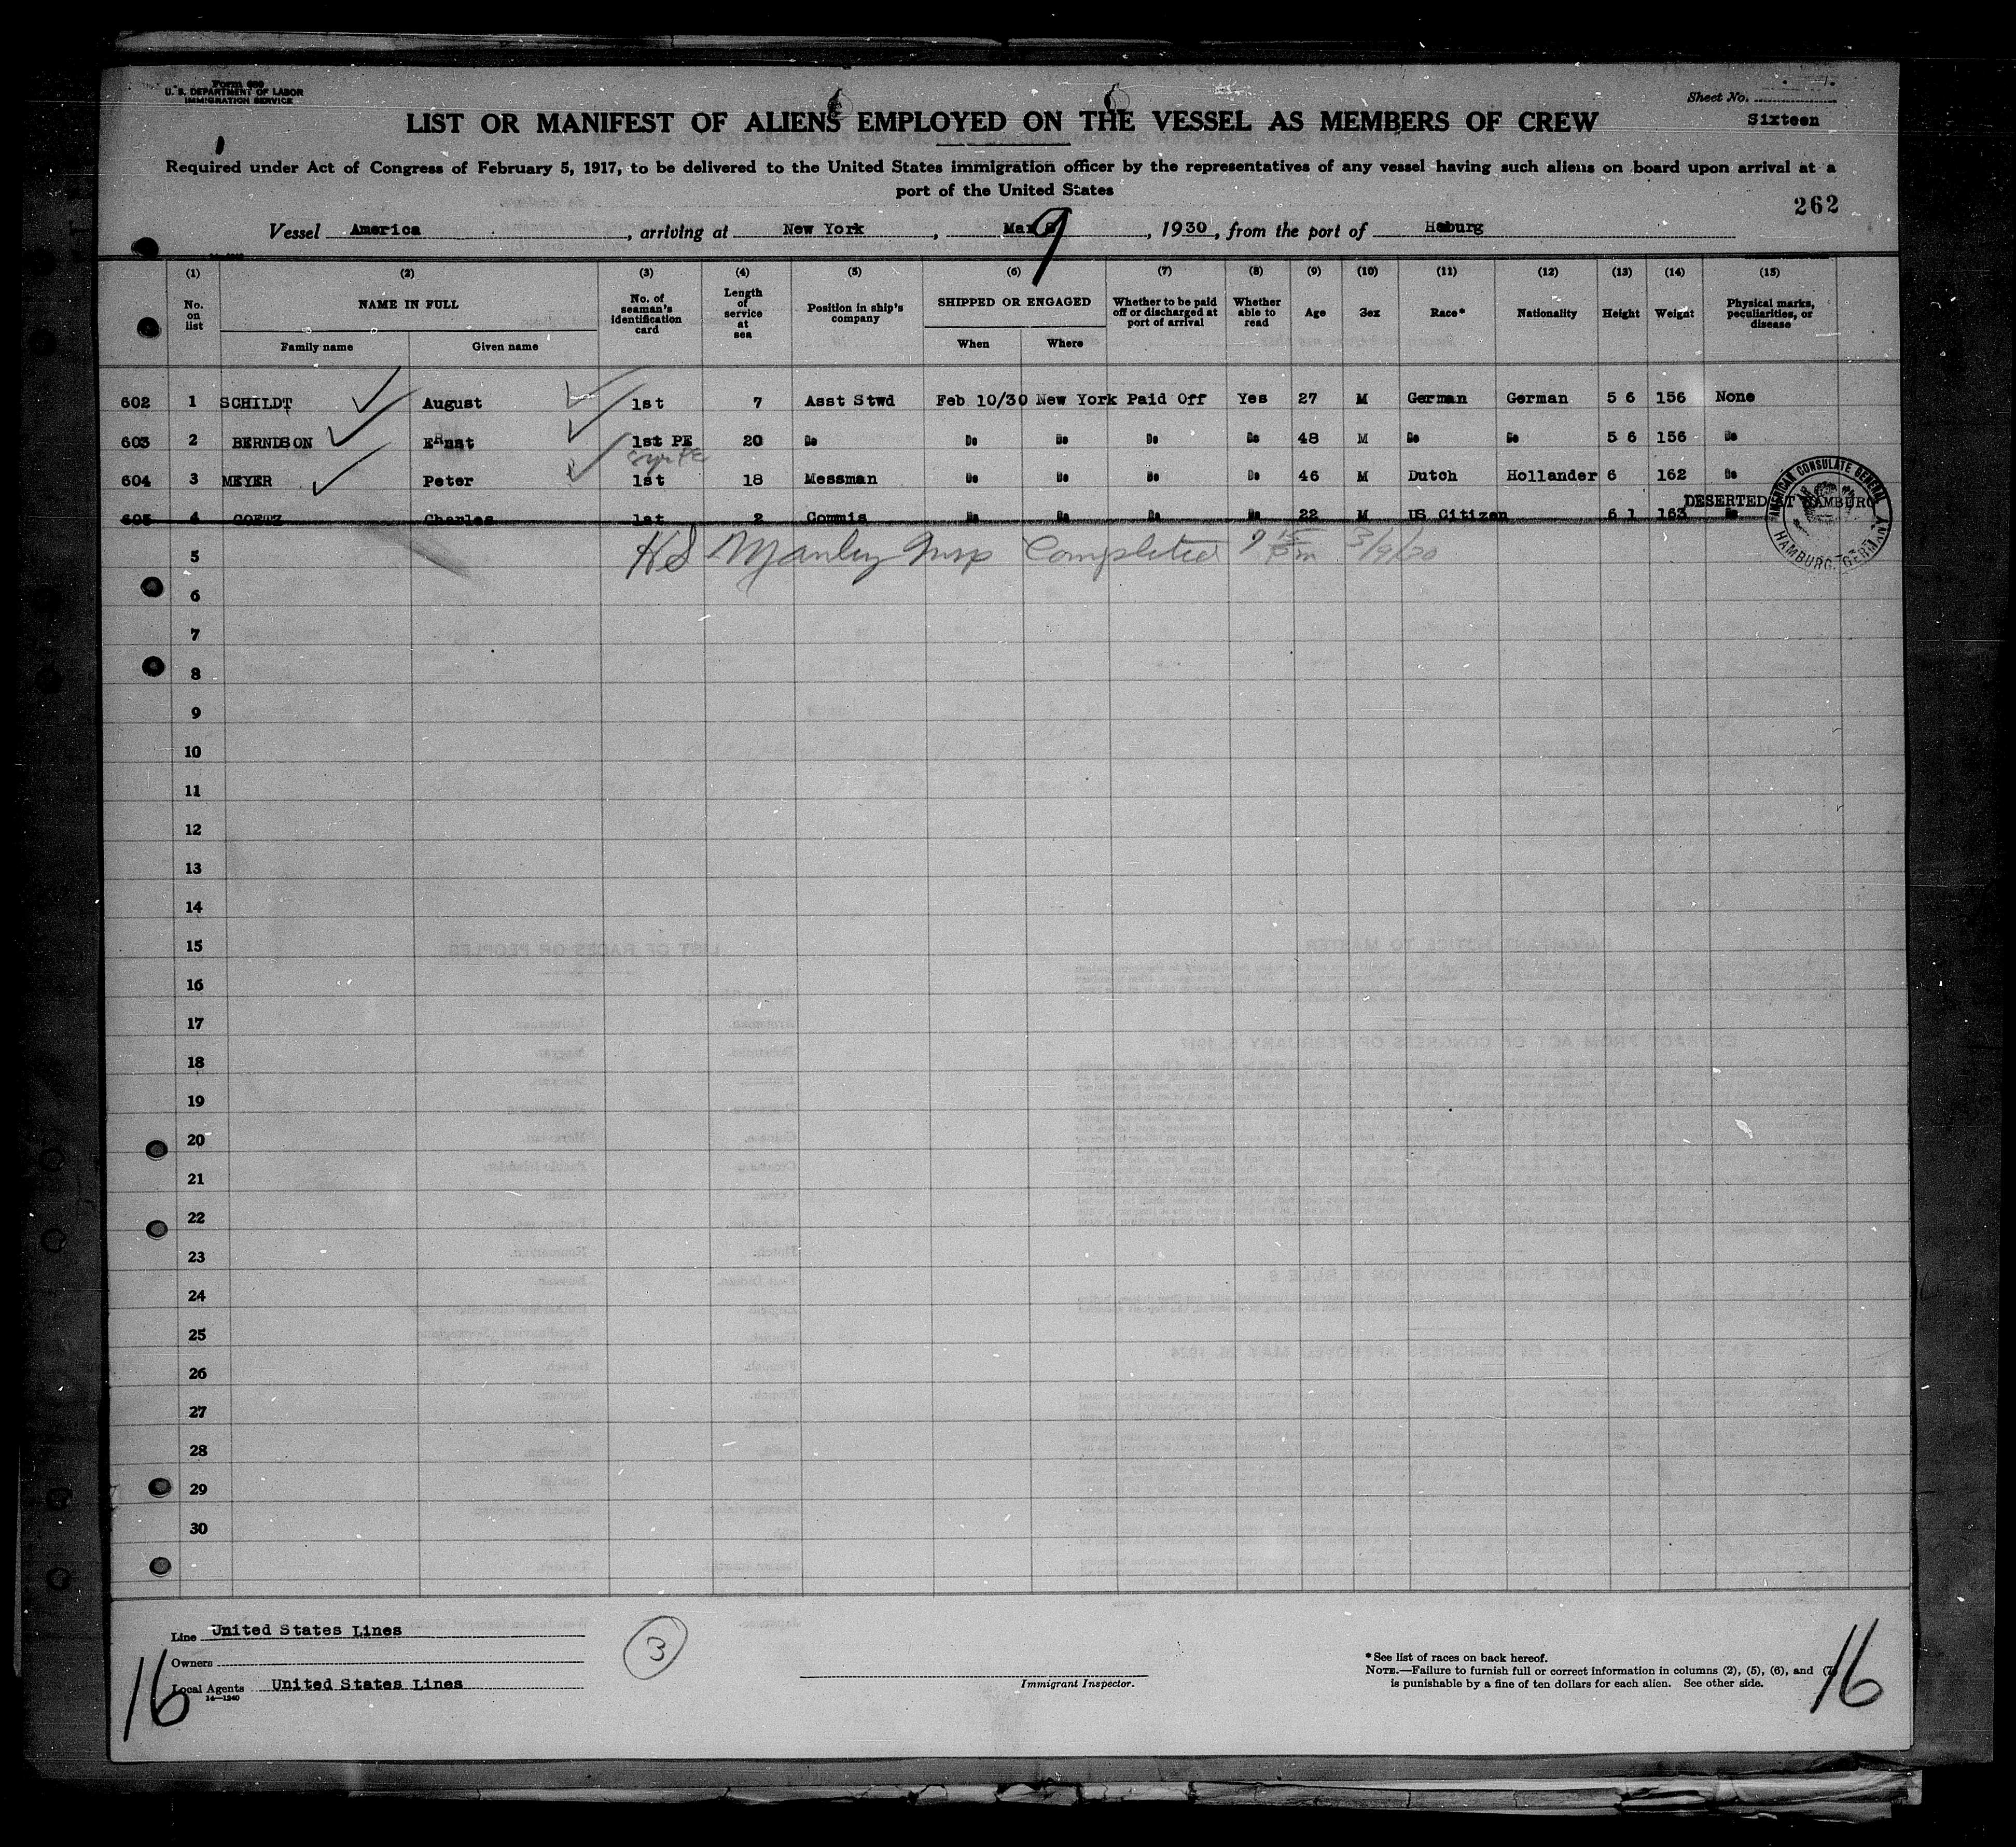 Form 680
U. S. DEPARTMENT OF LABOR
IMMIGRATION SERVICE
Sheet No.
Sixteen
LIST OR MANIFEST OF ALIENS EMPLOYED ON THE VESSEL AS MEMBERS OF CREW
Required under Act of Congress of February 5, 1917, to be delivered to the United States immigration officer by the representatives of any vessel having such aliens on board upon arrival at a
port of the United States
262
Vessel America, arriving at New York, Mar 9, 1930, from the port of Hamburg
(1) (2) (3) (4) (5) (6) (7) (8) (9) (10) (11) (12) (13) (14) (15)
No. on list NAME IN FULL Family name Given name No. of seaman's identification card Length of service at sea Position in ship's company SHIPPED OR ENGAGED When Where Whether to be paid off or discharged at port of arrival Whether able to read Age Sex Race* Nationality Height Weight Physical marks, peculiarities, or disease
602 1 SCHILDT August 1st 7 Asst Stwd Feb 10/30 New York Paid Off Yes 27 M German German 5 6 156 None
603 2 BERNDSON ERnst 1st PE 20 Do Do Do Do Do 48 M Do Do 5 6 156 Do
604 3 MEYER Peter 1st 18 Messman Do Do Do Do 46 M Dutch Hollander 6 162 Do
DESERTED AT HAMBURG
605 4 GOETZ Charles 1st 2 Commis Do Do Do Do 22 M US Citizen 6 1 163 Do
AMERICAN CONSULATE GENERAL
HAMBURG, GERMANY
5 HS Manley Insp Completed 9 15 pm 3/9/30
6
7
8
9
10
11
12
13
14
15
16
17
18
19
20
21
22
23
24
25
26
27
28
29
30
Line United States Lines
3
Owners
Local Agents United States Lines
14—1240
16
Immigrant Inspector.
*See list of races on back hereof.
NOTE.—Failure to furnish full or correct information in columns (2), (5), (6), and (7)
is punishable by a fine of ten dollars for each alien. See other side.
16